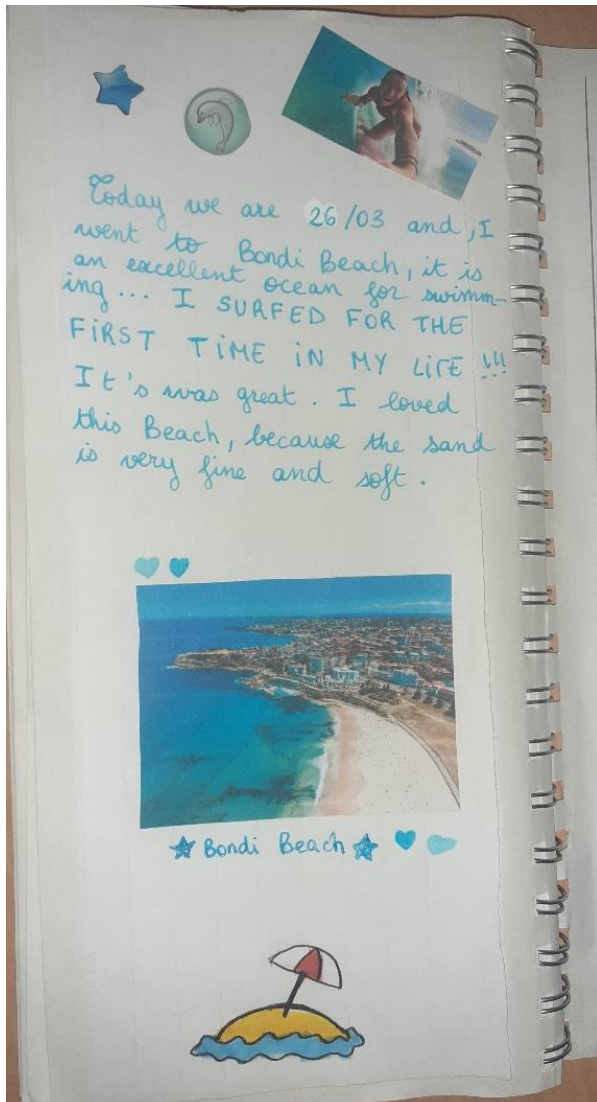 Today we are 26/03 and, I
went to Bondi Beach, it is
an excellent ocean for swimm-
ing... I SURFED FOR THE
FiRST TiME iN MY LiFE !!!
It's was great. I loved
this Beach, because the sand
is very fine and soft.
Bondi Beach